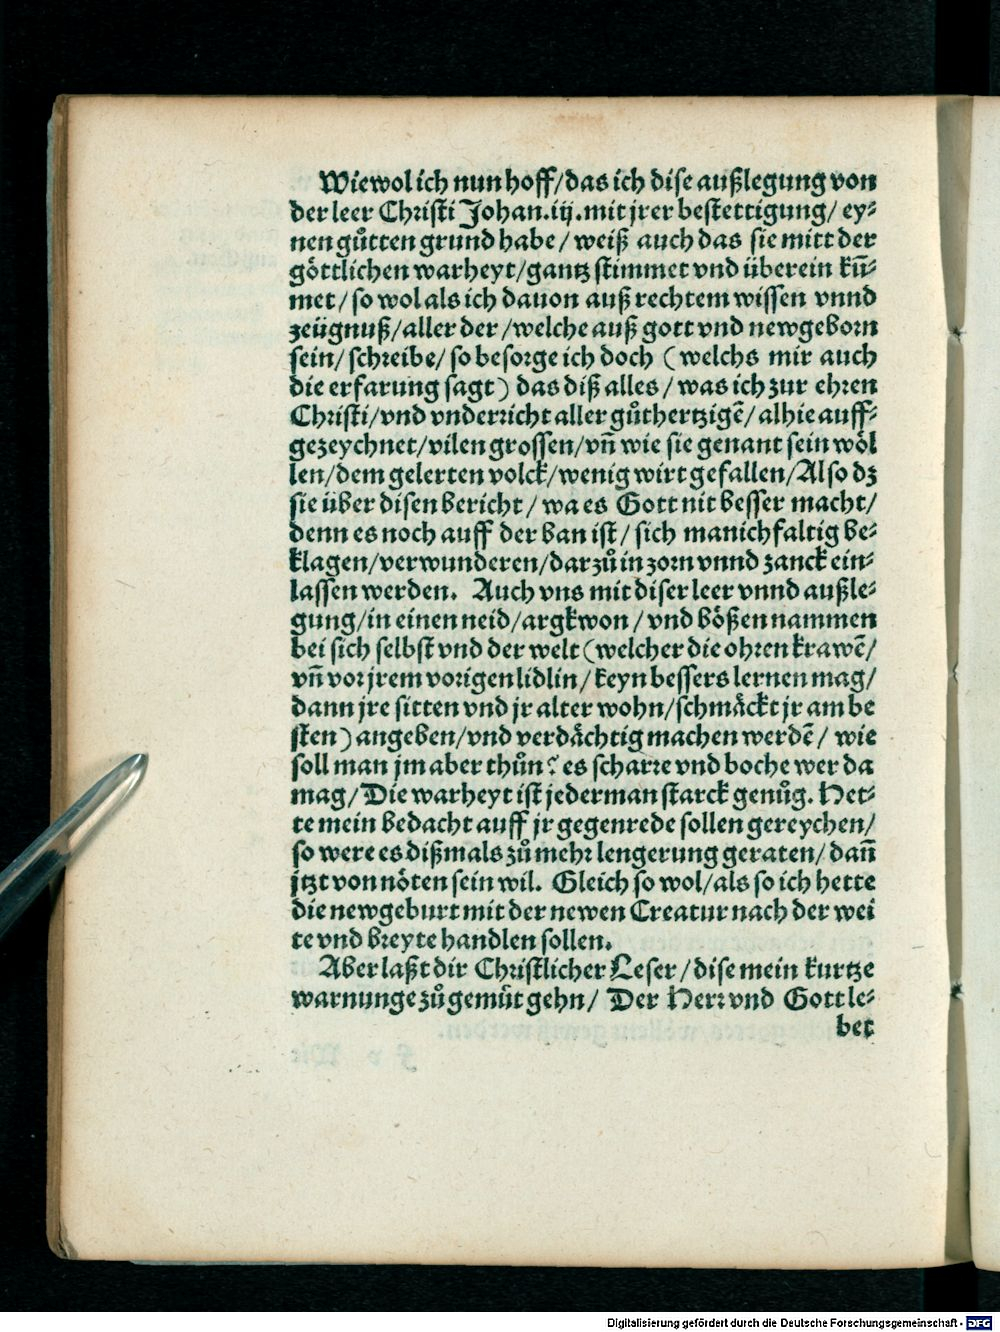 Wiewol ich nun hoff/das ich dise außlegung von
der leer Christi Johan.iij.mit jrer bestettigung/ ey⸗
nen gůtten grund habe/ weiß auch das sie mitt der
göttlichen warheyt/gantz stimmet vnd überein kū⸗
met/so wol als ich dauon auß rechtem wissen vnnd
zeügnuß/aller der/welche auß gott vnd newgeborn
sein/schreibe/so besorge ich doch (welchs mir auch
die erfarung sagt) das diß alles/was ich zur ehren
Christi/vnd vnderricht aller gůthertzigē/alhie auff⸗
gezeychnet/vilen grossen/vn̄ wie sie genant sein wöl
len/dem gelerten volck/wenig wirt gefallen/Also dz
sie über disen bericht/wa es Gott nit besser macht/
denn es noch auff der ban ist/sich manichfaltig be⸗
klagen/verwunderen/darzů in zorn vnnd zanck ein⸗
lassen werden. Auch vns mit diser leer vnnd außle⸗
gung/in einen neid/argkwon/vnd bößen nammen
bei sich selbst vnd der welt (welcher die ohren krawē/
vn̄ vor jrem vorigen lidlin/keyn bessers lernen mag/
dann jre sitten vnd jr alter wohn/schmäckt jr am be
sten) angeben/vnd verdächtig machen werdē/ wie
soll man jm aber thůn? es scharre vnd boche wer da
mag/Die warheyt ist jederman starck genůg. Het⸗
te mein bedacht auff jr gegenrede sollen gereychen/
so were es dißmals zů mehr lengerung geraten/dan̄
jtzt von nöten sein wil. Gleich so wol/als so ich hette
die newgeburt mit der newen Creatur nach der wei
te vnd breyte handlen sollen.
Aber laßt dir Christlicher Leser/dise mein kurtze
warnunge zů gemüt gehn/ Der Herr vnd Gott le⸗
bet
Digitalisierung gefördert durch die Deutsche Forschungsgemeinschaft - DFG